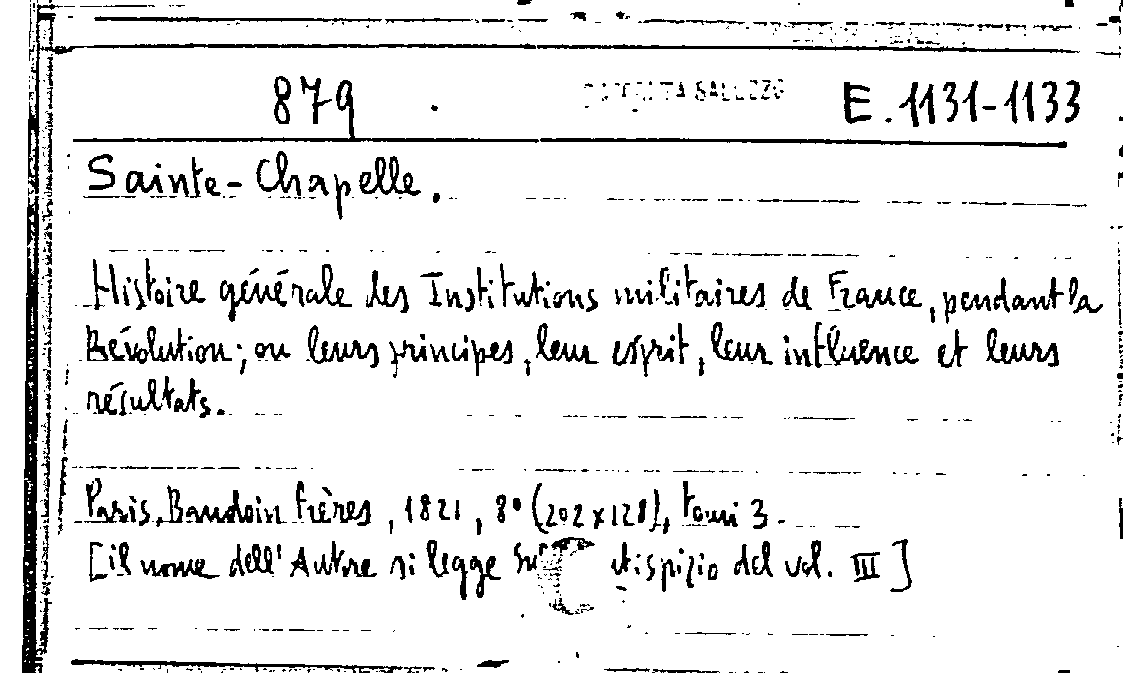 879 . SALUZZO E. 1131-1133
Sainte-Chapelle.
Histoire générale des Institutions militaires de France, pendant la
Révolution; ou leurs principes, leur esprit, leur influence et leurs
résultats.
Paris, Baudoin frères, 1821, 8° (202x128), tomi 3.
[il nome dell'Autore si legge
del vol. III]